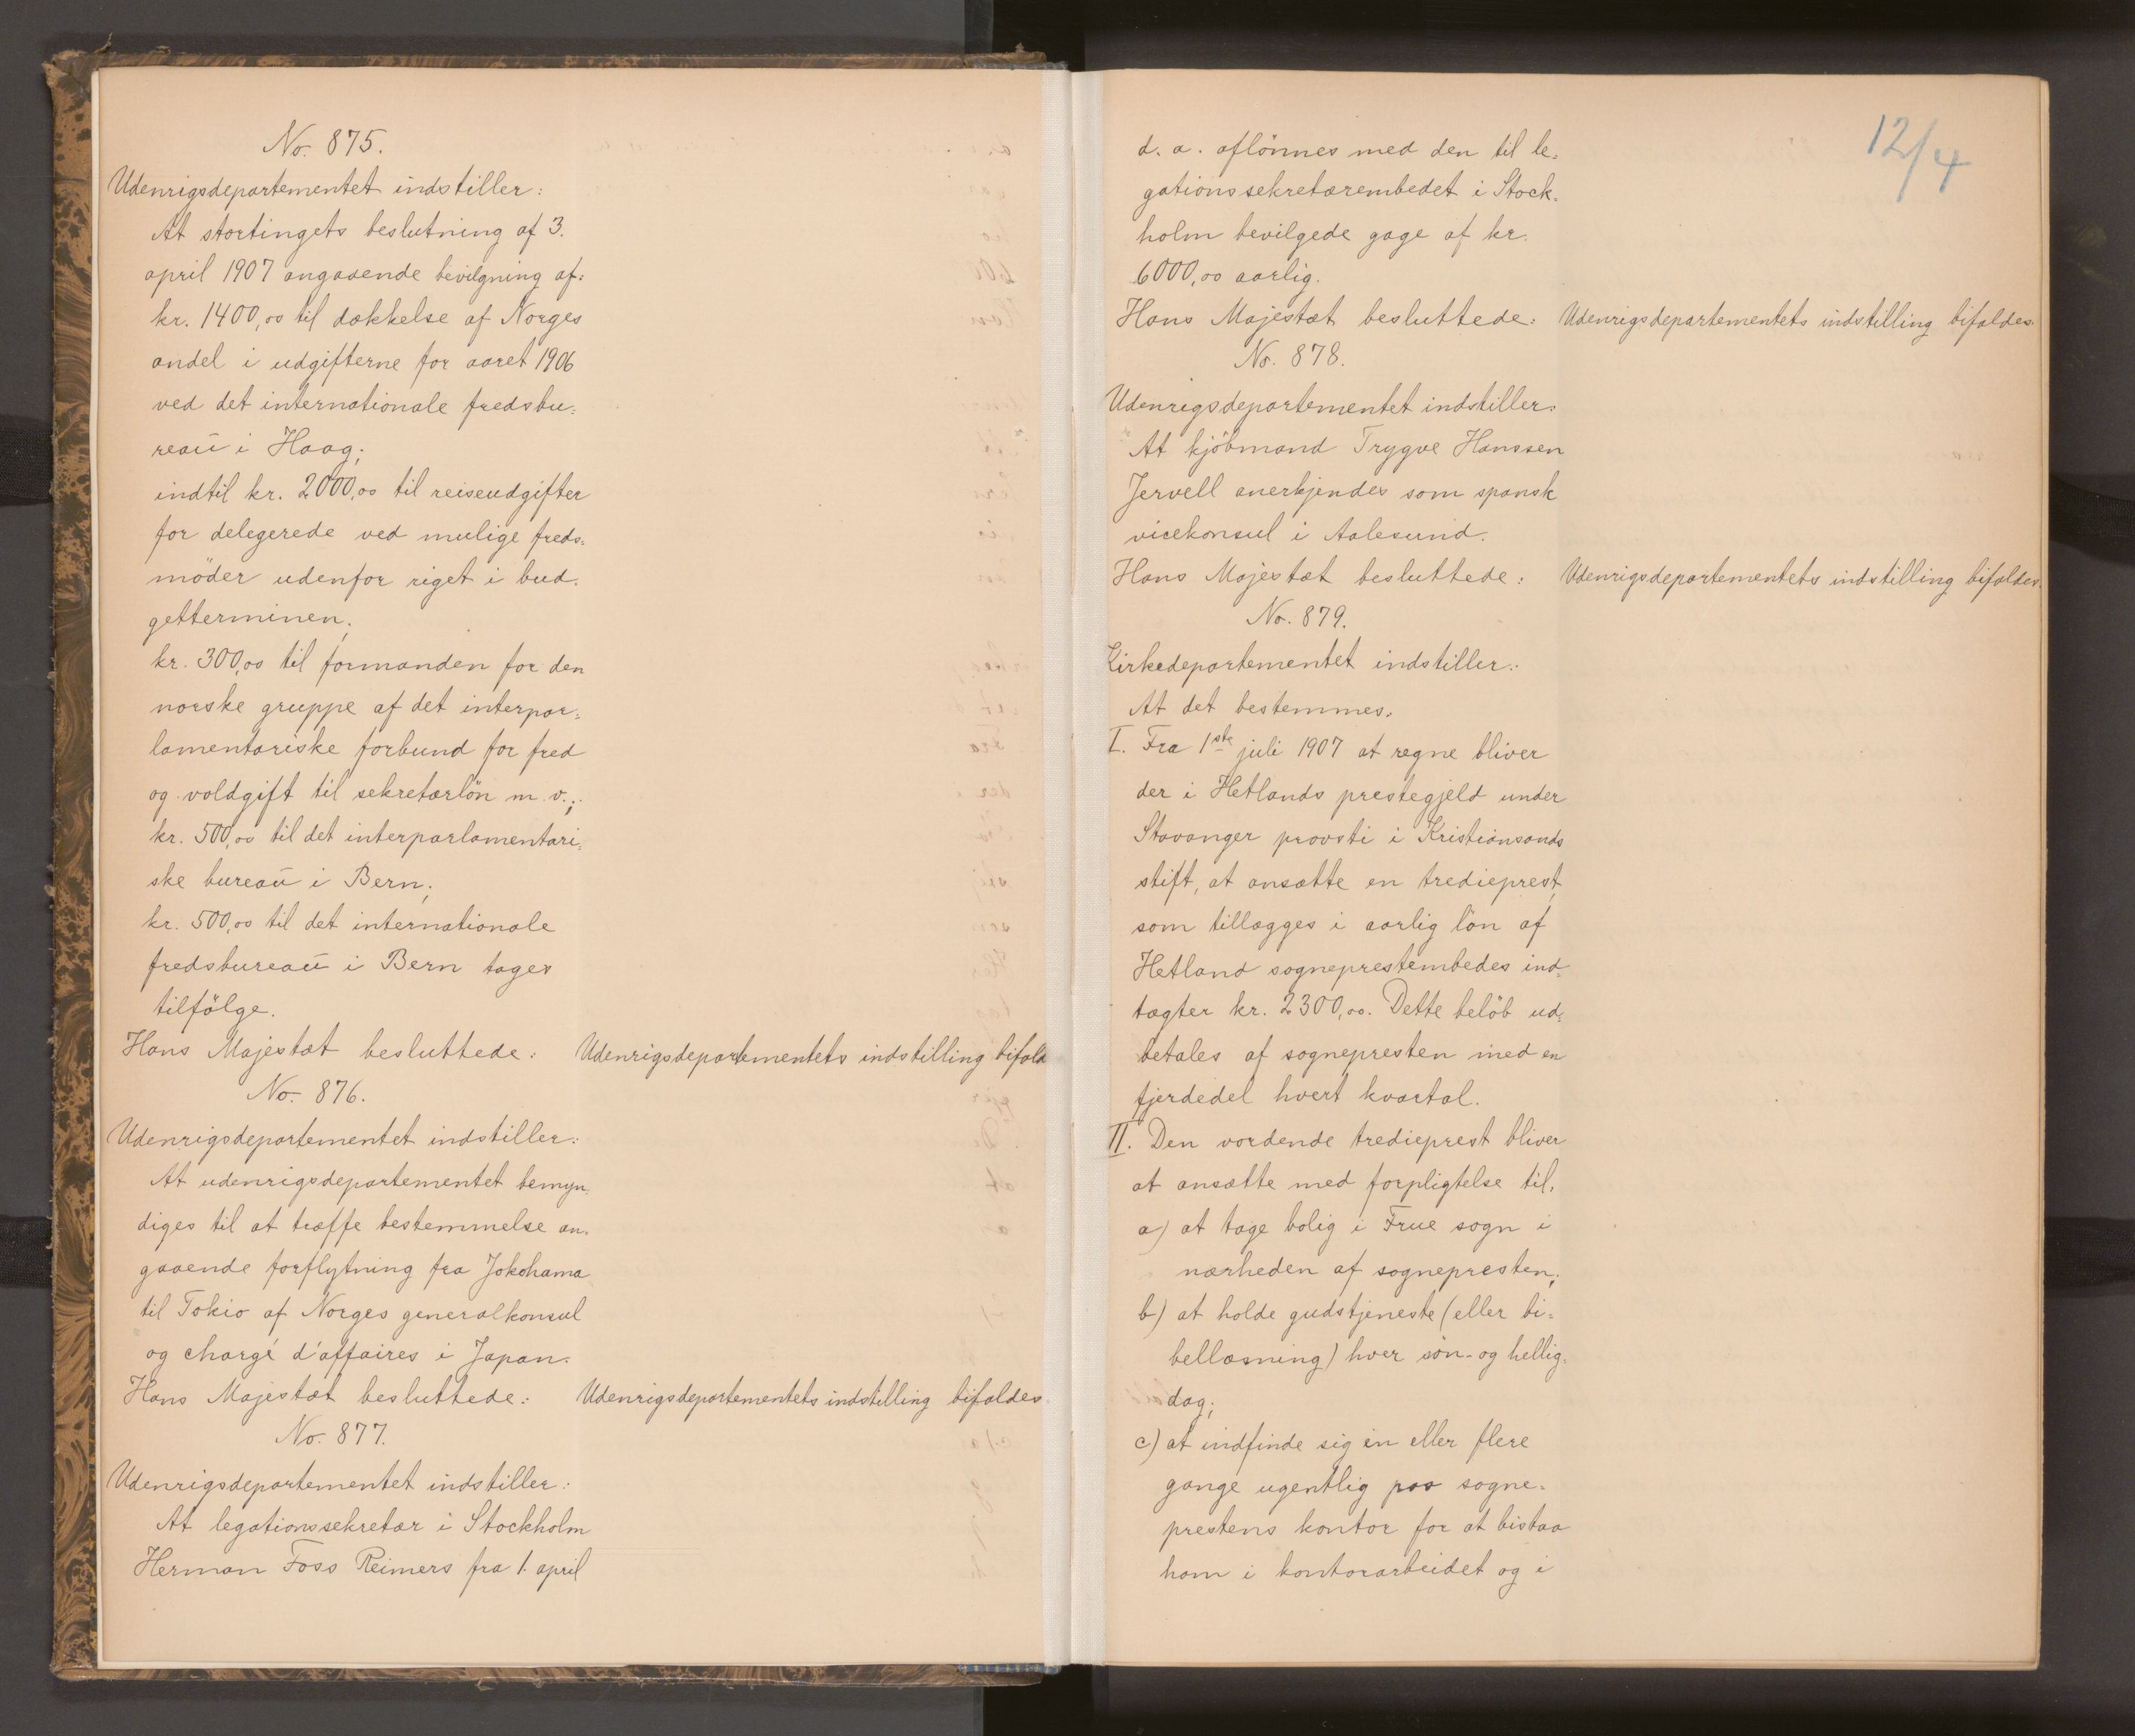 No. 875.
Udenrigsdepartementet indstiller:
At stortingets beslutning af 3.
april 1907 angaaende bevilgning af:
kr. 1400,00 til dækkelse af Norges
andel i udgifterne for aaret 1906
ved det internationale fredsbu=
reau i Haag;
indtil kr. 2000,00 til reiseudgifter
for delegerede ved mulige freds=
möder udenfor riget i bud=
getterminen;
kr. 300,00 til formanden for den
norske gruppe af det interpar=
lamentariske forbund for fred
og voldgift til sekretærlön m. v.;
kr. 500,00 til det interparlamentari=
ske bureau i Bern;
kr. 500,00 til det internationale
fredsbureau i Bern tages
tilfölge.
Hans Majestæt besluttede: Udenrigsdepartementets indstilling bifald
No. 876.
Udenrigsdepartementet indstiller:
At udenrigsdepartementet bemyn=
diges til at træffe bestemmelse an=
gaaende forflytning fra Jokohama
til Tokio af Norges generalkonsul
og chargé d'affaires i Japan.
Hans Majestæt besluttede: Udenrigsdepartementets indstilling bifaldes
No. 877.
Udenrigsdepartementet indstiller:
At legationssekretær i Stockholm
Herman Foss Reimers fra 1. april
12/4
d. a. aflönnes med den til le=
gationssekretærembedet i Stock=
holm bevilgede gage af kr.
6000,00 aarlig.
Hans Majestæt besluttede: Udenrigsdepartementets indstilling bifaldes.
No. 878.
Udenrigsdepartementet indstiller:
At kjöbmand Trygve Hanssen
Jervell anerkjendes som spansk
vicekonsul i Aalesund.
Hans Majestæt besluttede: Udenrigsdepartementets indstilling bifaldes.
No. 879.
Kirkedepartementet indstiller:
At det bestemmes:
I. Fra 1ste juli 1907 at regne bliver
der i Hetlands prestegjeld under
Stavanger provsti i Kristiansands
stift, at ansætte en tredieprest,
som tillægges i aarlig lön af
Hetland sogneprestembedes ind=
tægter kr. 2300,00. Dette belöb ud=
betales af sognepresten med en
fjerdedel hvert kvartal.
II. Den vordende tredieprest bliver
at ansætte med forpligtelse til:
a) at tage bolig i Frue sogn i
nærheden af sognepresten;
b) at holde gudstjeneste (eller bi=
bellæsning) hver sön- og hellig=
dag;
c) at indfinde sig én eller flere
gange ugentlig paa sogne=
prestens kontor for at bistaa
ham i kontorarbeidet og i